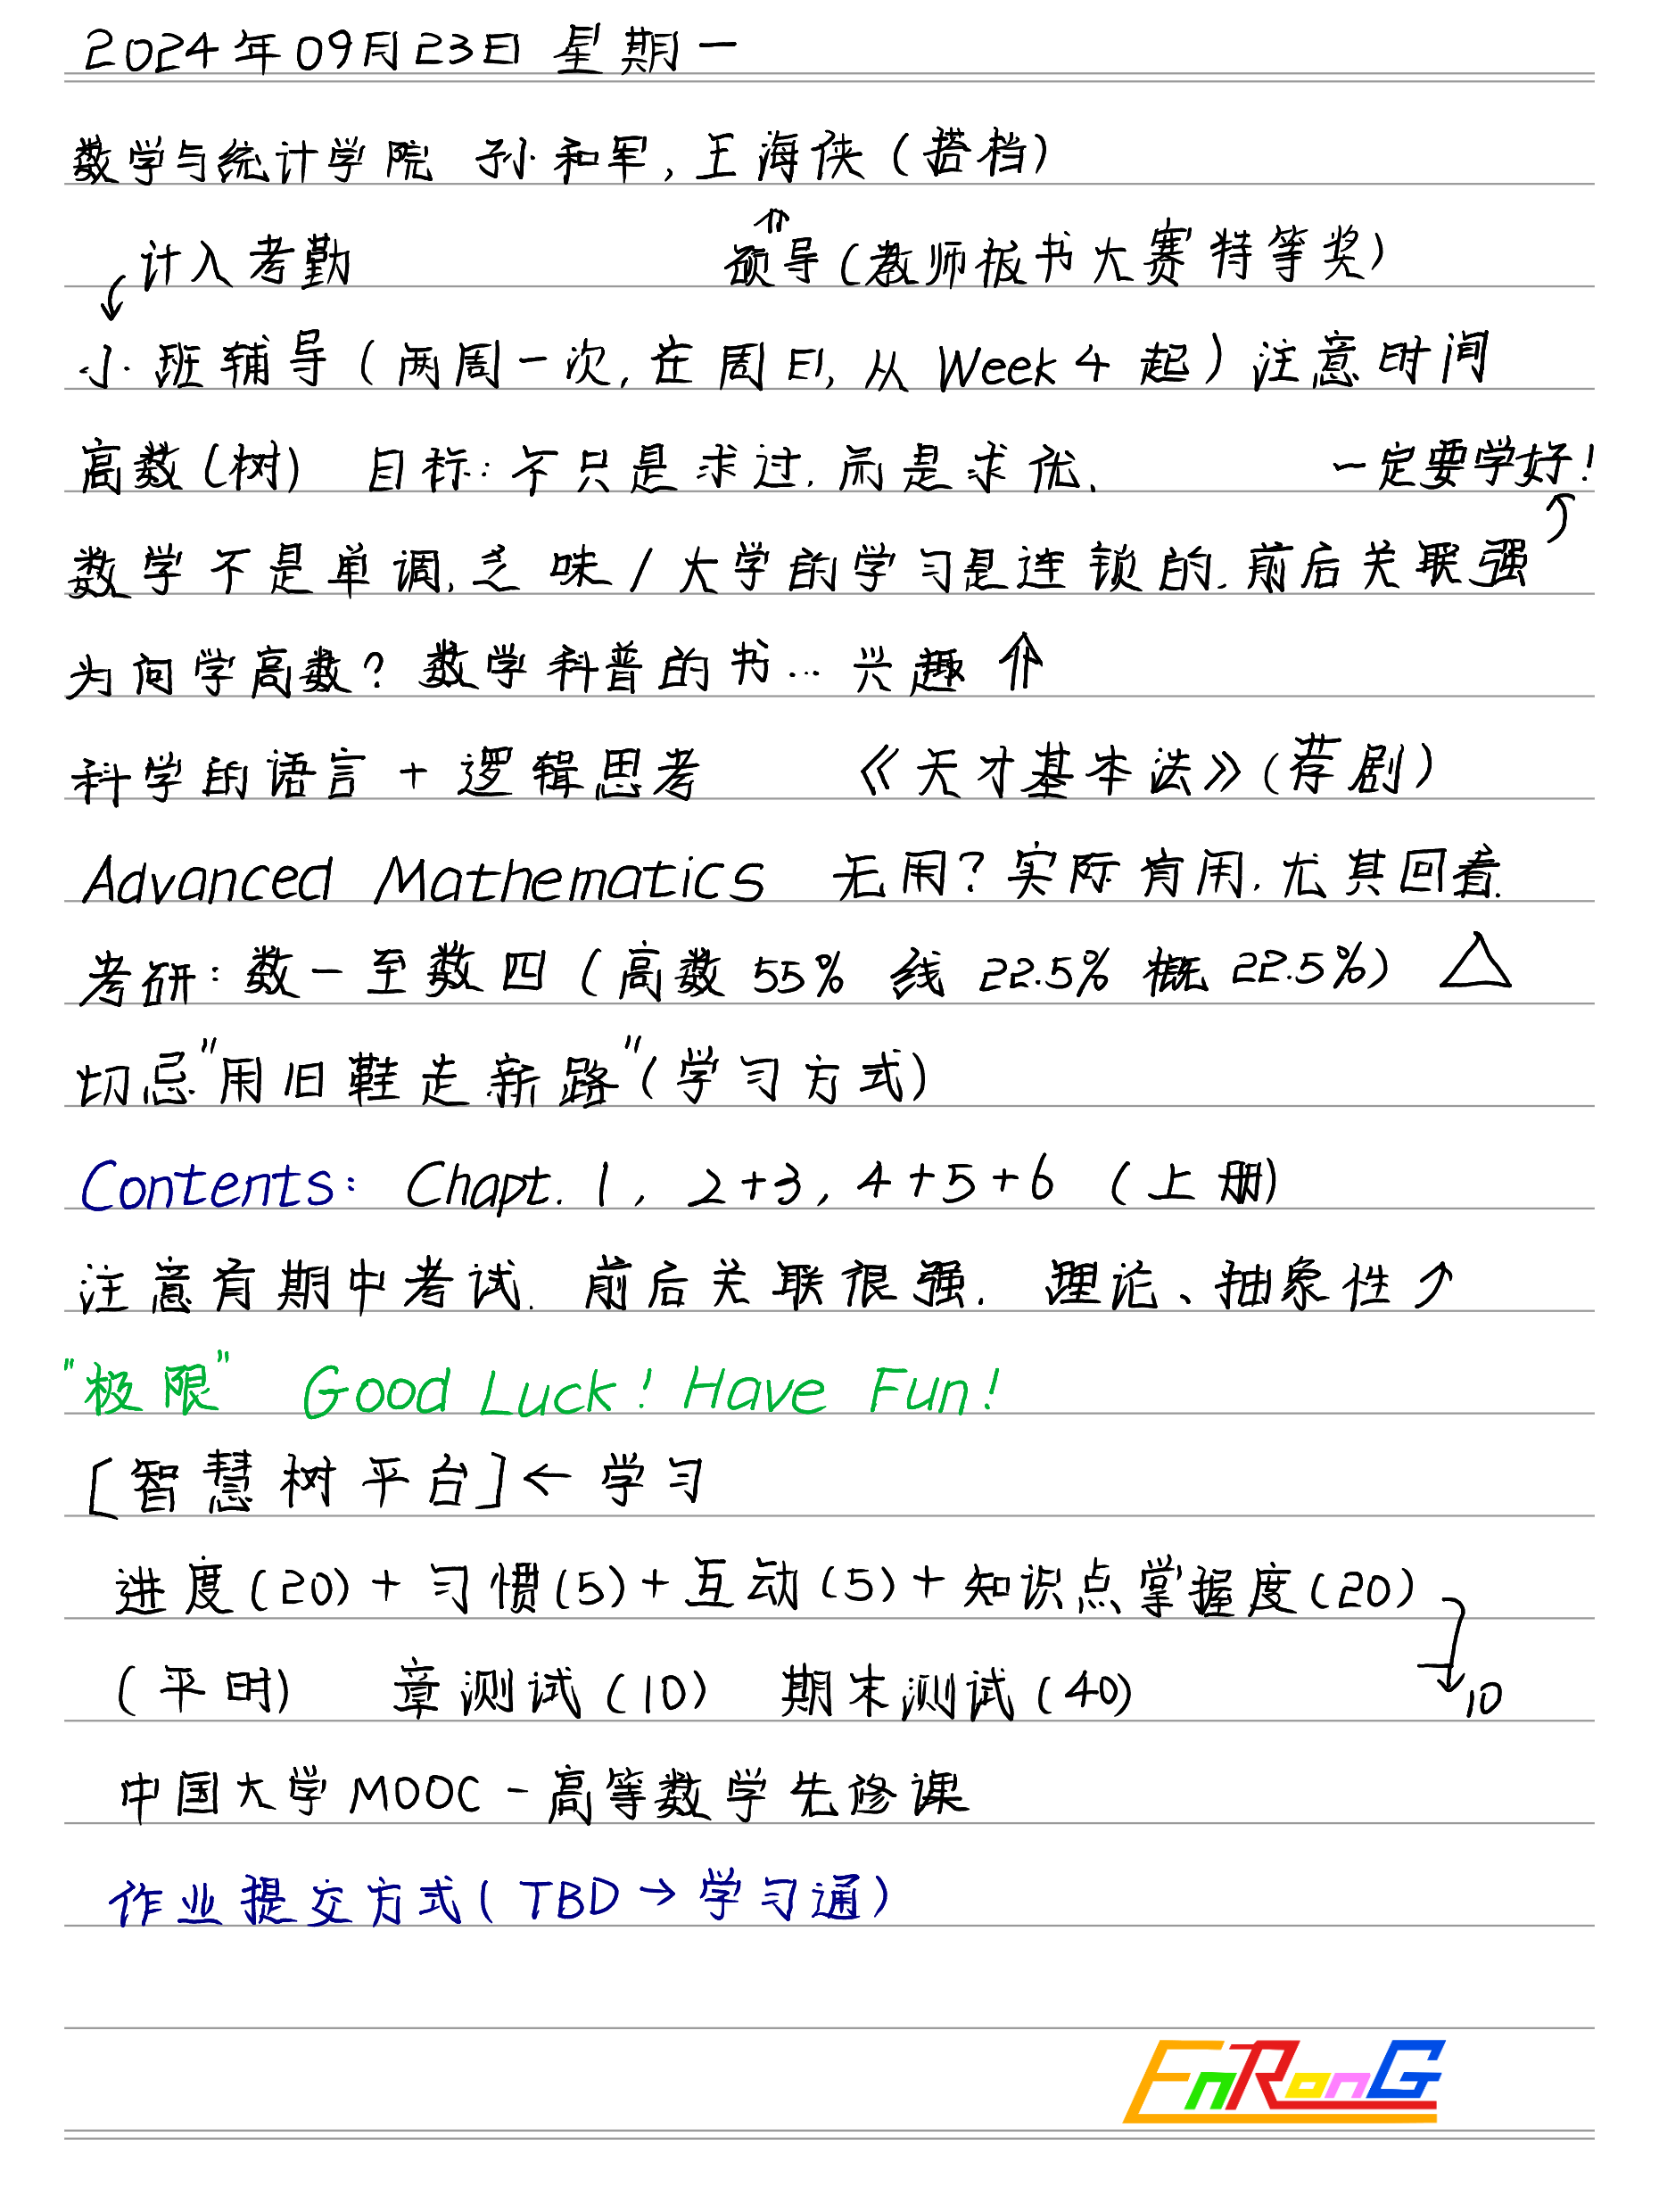 2024年09月23日 星期一
数学与统计学院 孙和军,王海侠(搭档)
计入考勤 ⇑ 硕导(教师板书大赛特等奖)
小班辅导(两周一次,在周日,从Week 4 起)注意时间
高数(树) 目标:不只是求过,而是求优、 一定要学好!
数学不是单调,乏味/大学的学习是连锁的,前后关联强
为何学高数?数学科普的书...兴趣⇑
科学的语言+逻辑思考 《天才基本法》(荐剧)
Advanced Mathematics 无用?实际有用,尤其回看.
考研:数一至数四(高数 55% 线 22.5% 概 22.5%) △
切忌"用旧鞋走新路"(学习方式)
Contents: Chapt. 1, 2+3, 4+5+6 (上册)
注意有期中考试. 前后关联很强. 理论、抽象性↗
"极限" Good Luck! Have Fun!
[智慧树平台]← 学习
进度(20)+习惯(5)+互动(5)+知识点掌握度(20)
(平时) 章测试(10) 期末测试(40) 10
中国大学MOOC-高等数学先修课
作业提交方式(TBD→学习通)
EnRonG